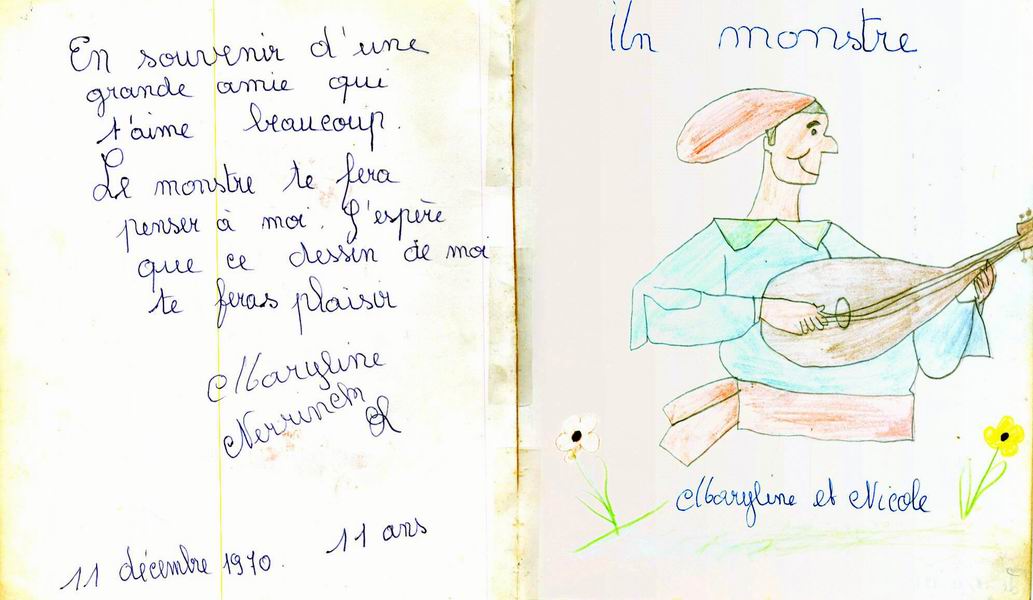 En souvenir d'une
grande amie qui
t'aime beaucoup.
Le monstre te fera
penser à moi. J'espère
que ce dessin de moi
te feras plaisir
Maryline
11 décembre 1970.
11 ans
Un monstre
Maryline et Nicole